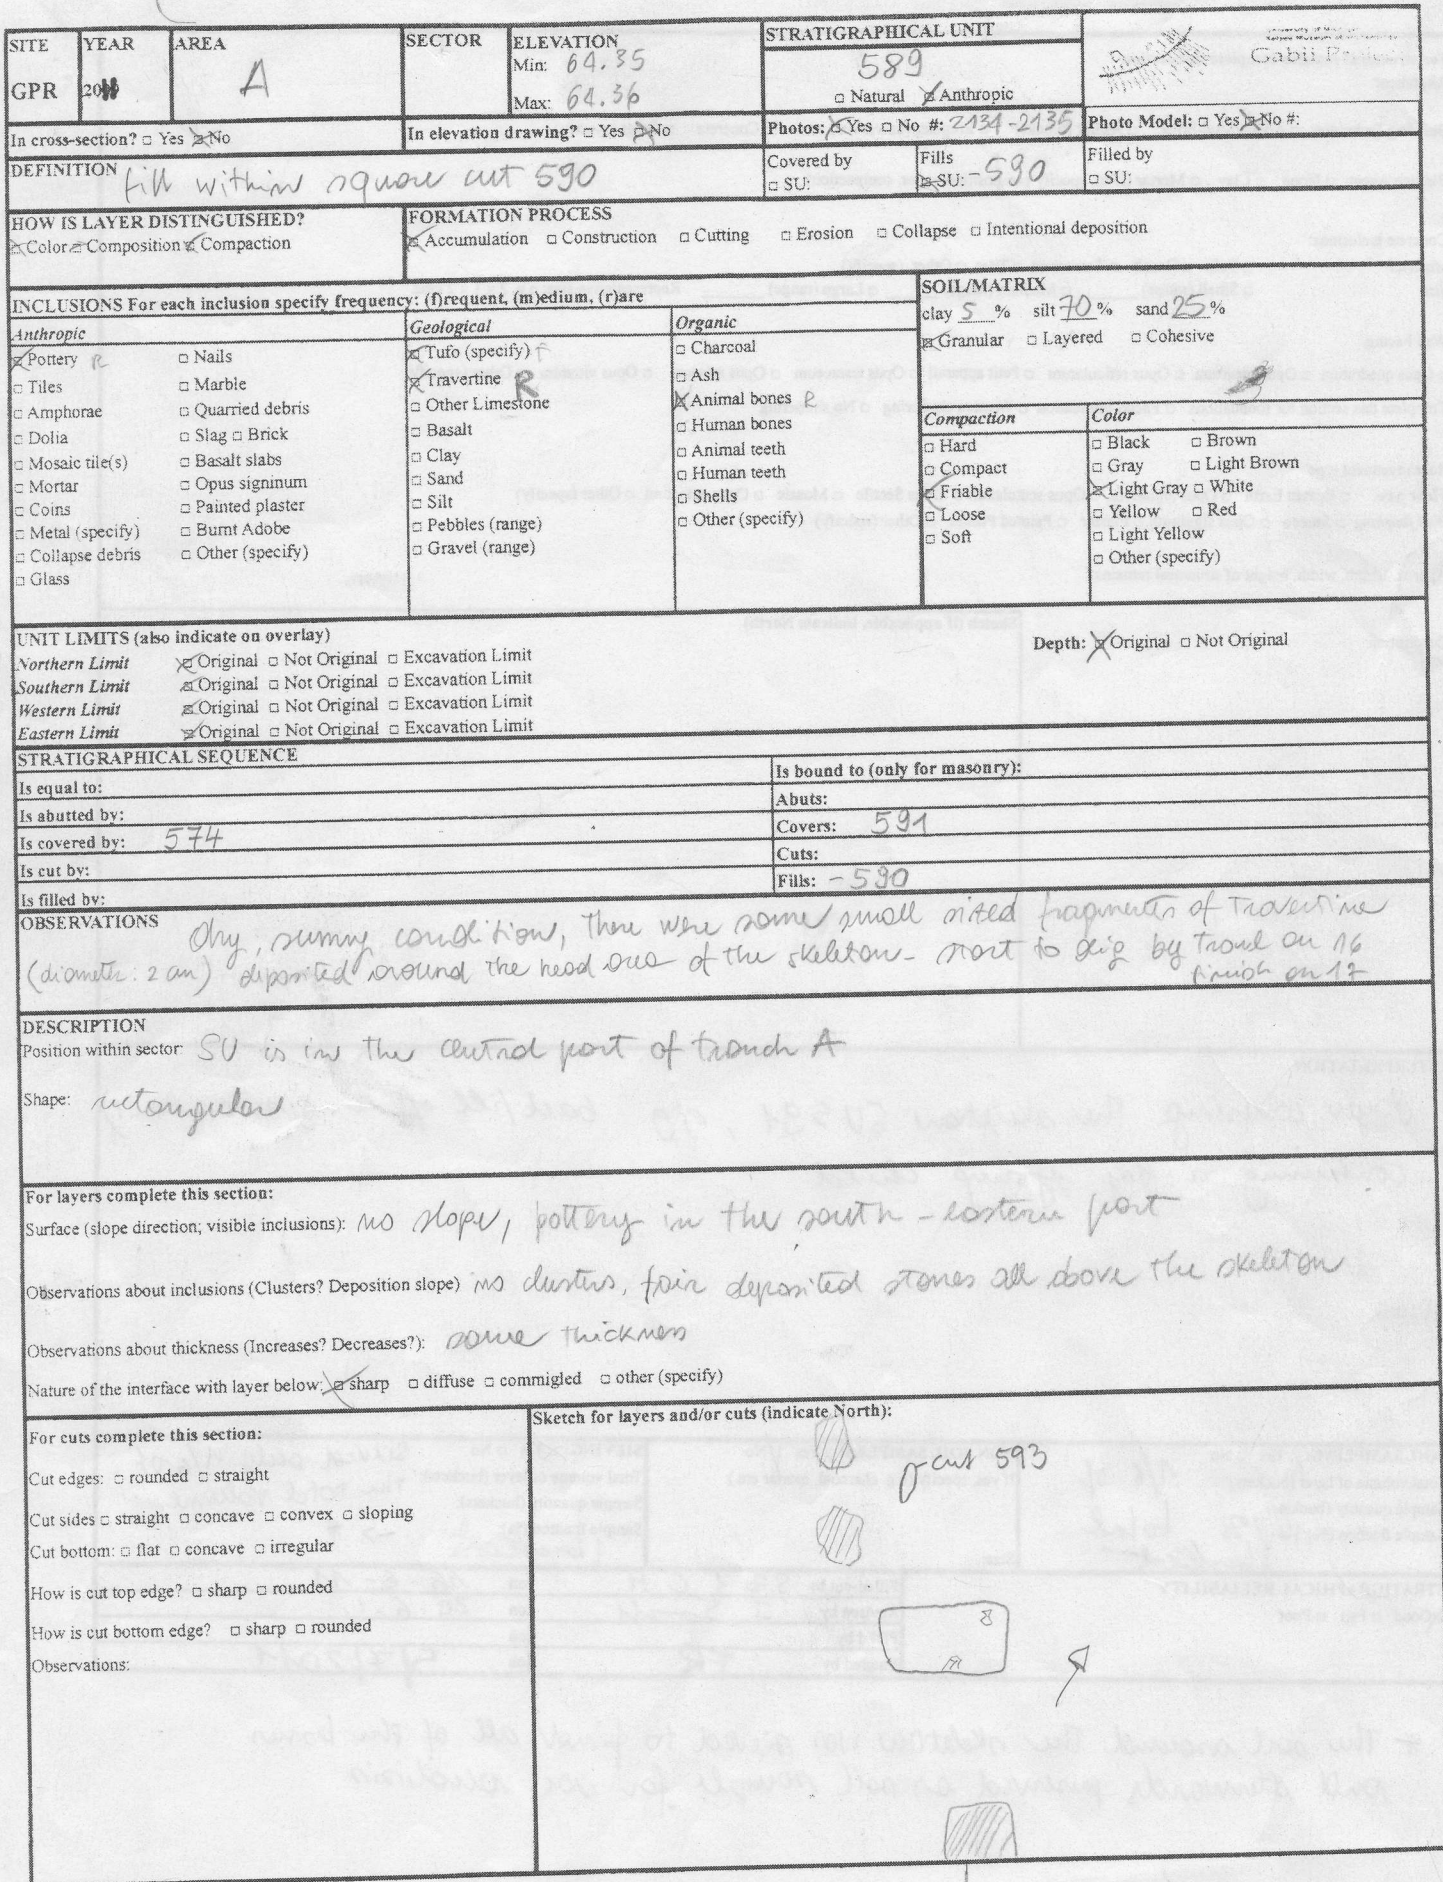 SITE YEAR AREA SECTOR ELEVATION STRATIGRAPHICAL UNIT
GPR A Min: 64.35 589 Gabii
Max: 64.36 □ Natural ☒ Anthropic
In cross-section? □ Yes ☒ No In elevation drawing? □ Yes ☒ No Photos: ☒ Yes □ No #: 2134-2135 Photo Model: □ Yes ☒ No #:
DEFINITION fill within square cut 590 Covered by □ SU: Fills ☒ SU: -590 Filled by □ SU:
HOW IS LAYER DISTINGUISHED? FORMATION PROCESS
☒ Color ☒ Composition ☒ Compaction ☒ Accumulation □ Construction □ Cutting □ Erosion □ Collapse □ Intentional deposition
INCLUSIONS For each inclusion specify frequency: (f)requent, (m)edium, (r)are
Anthropic
☒ Pottery R □ Nails
□ Tiles □ Marble
□ Amphorae □ Quarried debris
□ Dolia □ Slag □ Brick
□ Mosaic tile(s) □ Basalt slabs
□ Mortar □ Opus signinum
□ Coins □ Painted plaster
□ Metal (specify) □ Burnt Adobe
□ Collapse debris □ Other (specify)
□ Glass
Geological
☒ Tufo (specify) f
☒ Travertine R
□ Other Limestone
□ Basalt
□ Clay
□ Sand
□ Silt
□ Pebbles (range)
□ Gravel (range)
Organic
□ Charcoal
□ Ash
☒ Animal bones R
□ Human bones
□ Animal teeth
□ Human teeth
□ Shells
□ Other (specify)
SOIL/MATRIX
clay 5 % silt 70 % sand 25 %
☒ Granular □ Layered □ Cohesive
Compaction
□ Hard
□ Compact
☒ Friable
□ Loose
□ Soft
Color
□ Black □ Brown
□ Gray □ Light Brown
☒ Light Gray □ White
□ Yellow □ Red
□ Light Yellow
□ Other (specify)
UNIT LIMITS (also indicate on overlay) Depth: ☒ Original □ Not Original
Northern Limit ☒ Original □ Not Original □ Excavation Limit
Southern Limit ☒ Original □ Not Original □ Excavation Limit
Western Limit ☒ Original □ Not Original □ Excavation Limit
Eastern Limit ☒ Original □ Not Original □ Excavation Limit
STRATIGRAPHICAL SEQUENCE
Is equal to: Is bound to (only for masonry):
Is abutted by: Abuts:
Is covered by: 574 Covers: 591
Is cut by: Cuts:
Is filled by: Fills: -590
OBSERVATIONS Dry, sunny condition, there were some small sized fragments of travertine
(diameter: 2 cm) deposited around the head area of the skeleton - start to dig by trowel on 16
finish on 17
DESCRIPTION
Position within sector: SU is in the central part of trench A
Shape: rectangular
For layers complete this section:
Surface (slope direction; visible inclusions): no slope, pottery in the south-eastern part
Observations about inclusions (Clusters? Deposition slope) no clusters, fair deposited stones all above the skeleton
Observations about thickness (Increases? Decreases?): same thickness
Nature of the interface with layer below: ☒ sharp □ diffuse □ commigled □ other (specify)
For cuts complete this section:
Cut edges: □ rounded □ straight
Cut sides □ straight □ concave □ convex □ sloping
Cut bottom: □ flat □ concave □ irregular
How is cut top edge? □ sharp □ rounded
How is cut bottom edge? □ sharp □ rounded
Observations:
Sketch for layers and/or cuts (indicate North):
cut 593